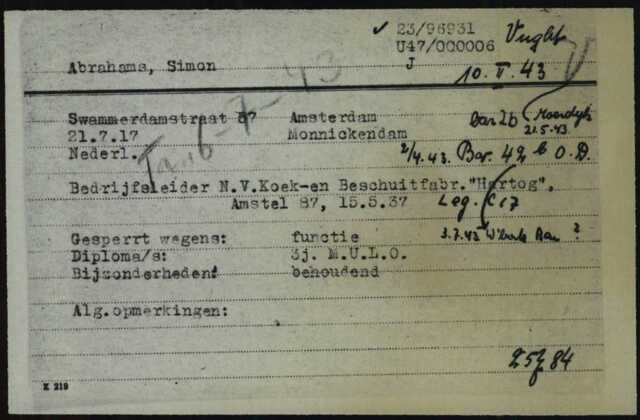 ✓ 23/96931 Vught
U47/000006
Abrahams, Simon J
10. V. 43
Ta. 6-7-43
Swammerdamstraat 87 Amsterdam Bar 2b Moerdijk
21.7.17 Monnickendam 21.5.43.
Nederl. 2/4.43. Bar. 42 b O.D.
Bedrijfsleider N.V.Koek-en Beschuitfabr."Hartog",
Amstel 87, 15.5.37 Leg.
Gesperrt wegens: functie 3.7.43 ?
Diploma/s: 3j. M.U.L.O.
Bijzonderheden: behoudend
Alg.opmerkingen:
84
K 219